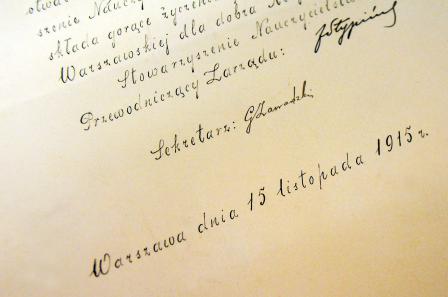 szenie Nauczy
składa gorące życzenia
Warszawskiej dla dobra
Stowarzyszenie Nauczycielstwa
Przewodniczący Zarządu:
Sekretarz: GZawadzki
Warszawa dnia 15 listopada 1915 r.